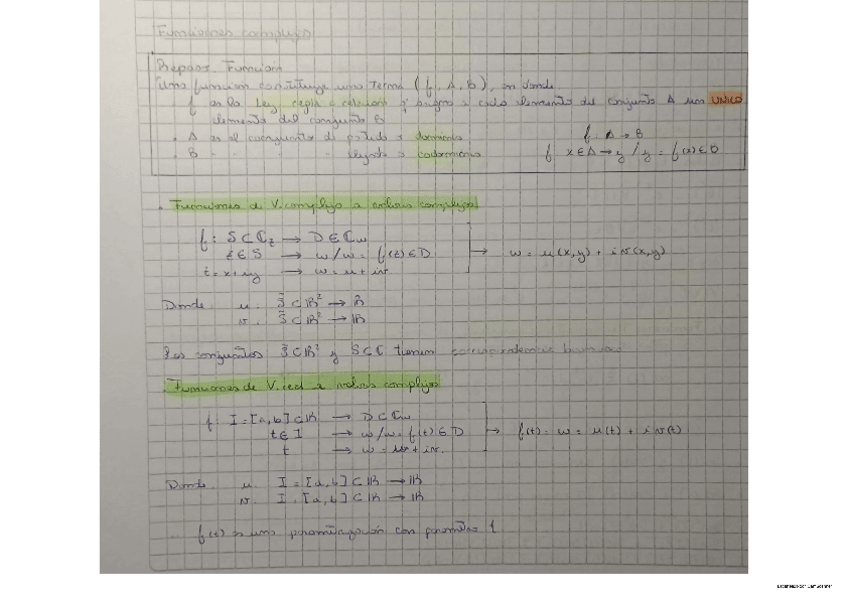 Funciones complejas
Repaso. Función
Una función constituye una terna (f, A, B), en donde
f es la ley, regla o relación q' asigna a cada elemento del conjunto A un ÚNICO
elemento del conjunto B
. A es el conjunto de partida o dominio
f: A → B
. B - - - - llegada o codominio
f x∈A → y / y = f(x) ∈ B
. Funciones de V. compleja a valores complejos
f: S ⊂ ℂz → D ∈ ℂw
z ∈ S → w / w = f(z) ∈ D
z = x + iy → w = u + iv
→ w = u(x,y) + i v(x,y)
Donde u: S̃ ⊂ ℝ² → ℝ
v: S̃ ⊂ ℝ² → ℝ
Los conjuntos S̃ ⊂ ℝ² y S ⊂ ℂ tienen correspondencia biunívoca
Funciones de V. real a valores complejos
f: I = [a,b] ⊂ ℝ → D ⊂ ℂw
t ∈ I → w / w = f(t) ∈ D
t → w = u + iv.
→ f(t) = w = u(t) + i v(t)
Donde u: I = [a,b] ⊂ ℝ → ℝ
v: I = [a,b] ⊂ ℝ → ℝ
f(t) es una parametrización con parámetro t